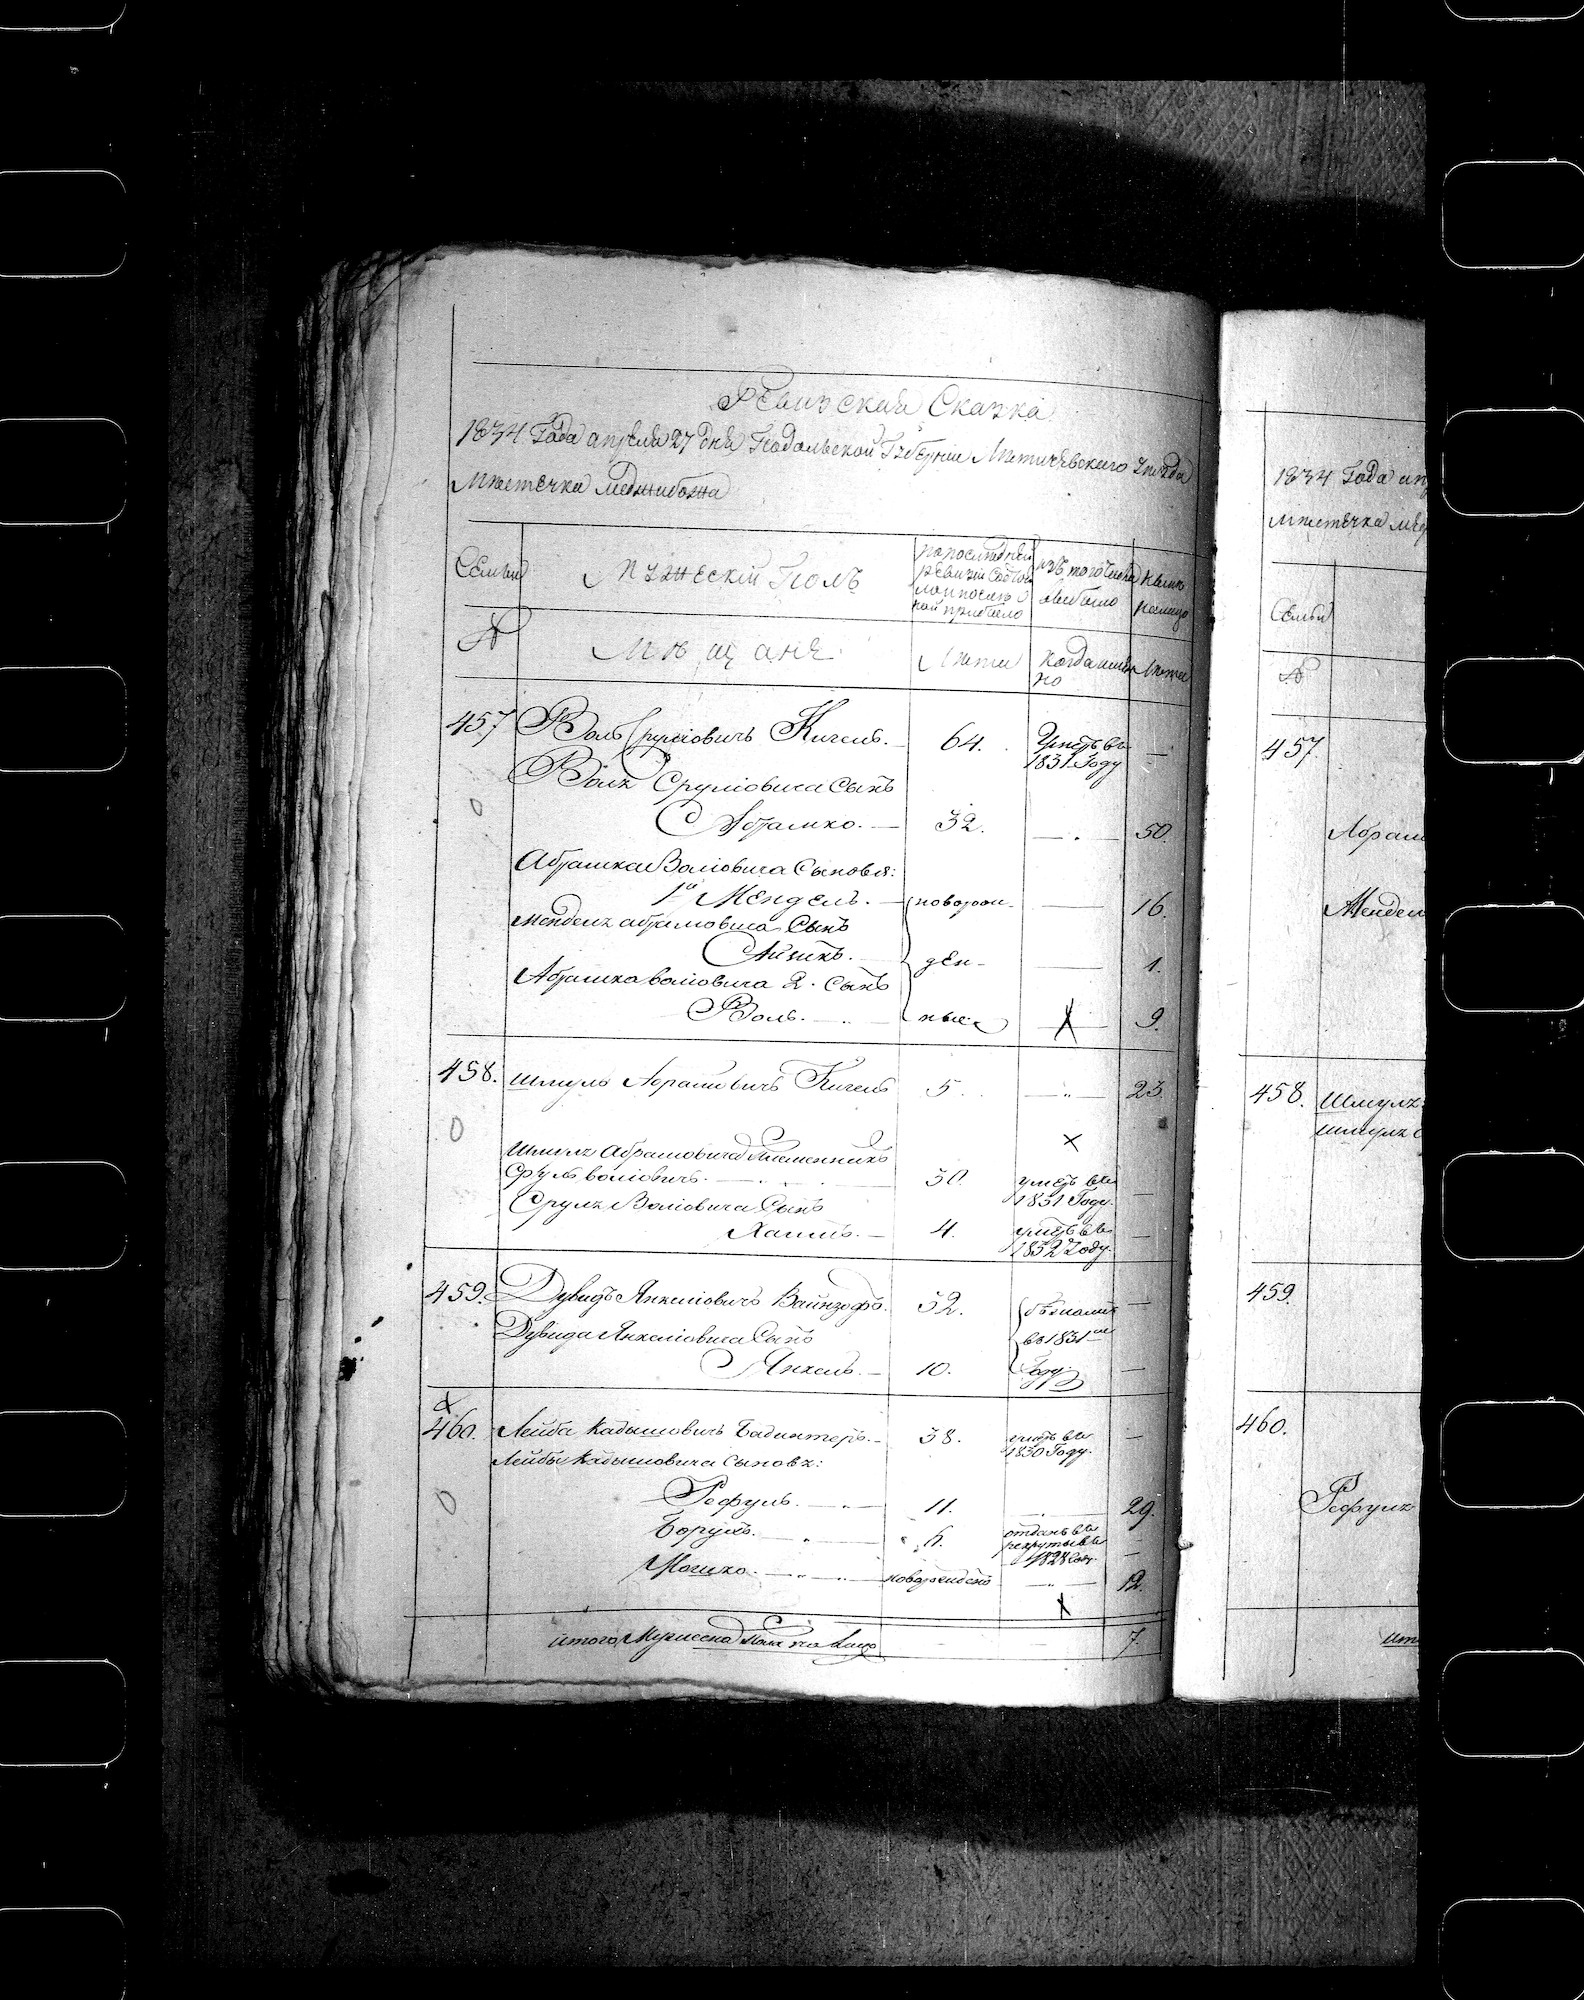 Ревизская Сказка
1834 Года апреля 27 дня Подольской Губернии Летичевского уезда
местечка Меджибожа
Семьи
Мужескій Полъ
по последней ревизіи состояло и после оной прибыло
изъ того числа выбыло
ныне на лицо
№
Мещане
Лета
Когда именно
Лета
457. Воль Срулiовичъ Кигель. 64. Умеръ въ 1831 Году —
Воля Срулiовича Сынъ
Абрамко. 32. — 50.
Абрамка Волiовича Сыновья:
1й Мендель. новорож- — 16.
Менделя абрамовича Сынъ
Айзикъ. ден- — 1.
Абрамка волiовича 2. Сынъ
Воль. ные X 9.
458. Шмуль Абрамовичъ Кигель 5. — 23.
Шмуля Абрамовича Племенникъ X
Сруль волiовичъ. 30. умеръ въ 1831 Году. —
Сруля Волiовича Сынъ
Хаимъ. 4. умеръ въ 1832 Году. —
459. Дувидъ Янкелiовичъ Вайнзофъ. 52. безъизв въ 1831м —
Дувида Янкелiовича Сынъ
Янкель. 10. Году —
X
460. Лейба Кадышовичъ 38. умеръ въ 1830 Году. —
Лейбы Кадышовича Сыновя:
Рефуль. 11. 29.
Борухъ. 6. отданъ въ рекруты въ 1828 Году. —
Мошко. новорожденъ — 12.
X
итого Мужеска пола на лицо 7.
1834 Года апр
местечка мед
Семьи
№
457.
Абрам
Мендел
458. Шмуля
Шмуля с
459.
460.
Рефуля
ит